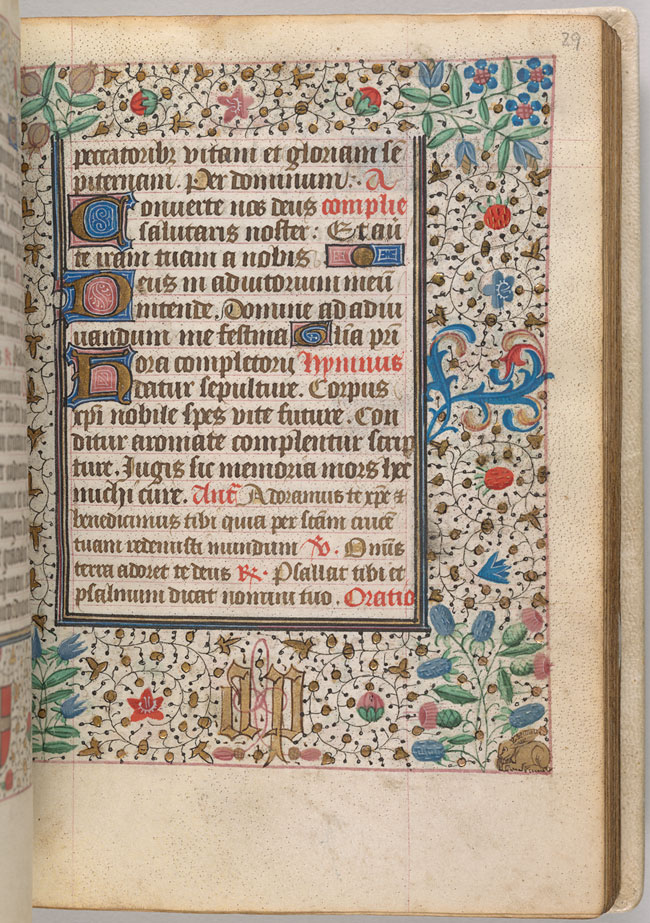 29
peccatoribꝫ vitam et gloriam se
piternam. Per dominum. A
Conuerte nos deus complie
salutaris noster: Et au
te iram tuam a nobis
Deus in adiutorium meū
intende. Domine ad adiu
uandum me festina Glīa prī
Hora completorij Hymnus
datur sepulture. Corpus
xp̄i nobile spes vite future. Con
ditur aromate complentur scrip
ture. Iugis sic memoria mors hec
michi cure. Ant̄ Adoramus te xp̄e &
benedicimus tibi quia per sc̄am crucē
tuam redemisti mundum ℣. Omīs
terra adoret te deus ℟. Psallat tibi et
psalmum dicat nomini tuo. Oratio